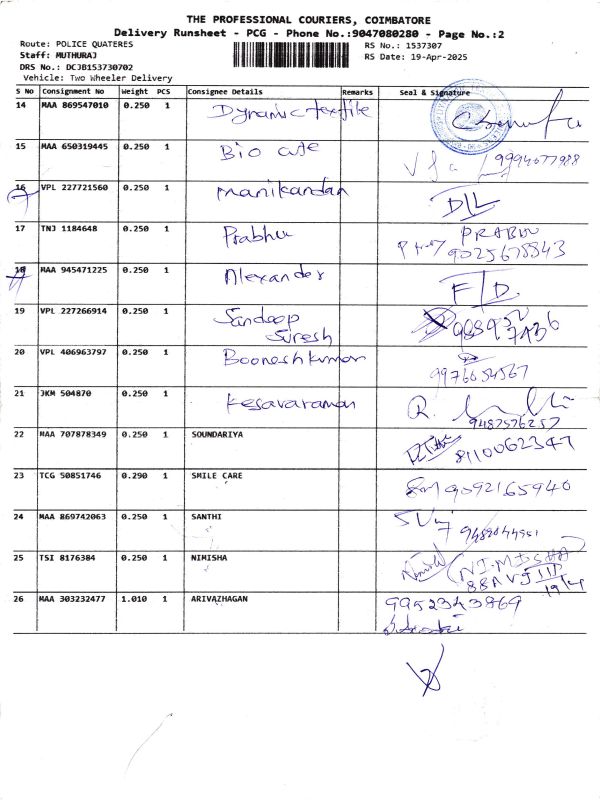 THE PROFESSIONAL COURIERS, COIMBATORE
Delivery Runsheet - PCG - Phone No.:9047080280 - Page No.:2
Route: POLICE QUATERES
RS No.: 1537307
Staff: MUTHURAJ
RS Date: 19-Apr-2025
DRS No.: DCJB153730702
Vehicle: Two Wheeler Delivery
S No Consignment No Weight PCS Consignee Details Remarks Seal & Signature
14 MAA 869547010 0.250 1 Dynamic textile
15 MAA 650319445 0.250 1 Bio cute 9994077988
16 VPL 227721560 0.250 1 Manikandan D/L
17 TNJ 1184648 0.250 1 Prabhu PRABU
9025675543
18 MAA 945471225 0.250 1 Alexander F/D.
19 VPL 227266914 0.250 1 Sandeep
Suresh
20 VPL 406963797 0.250 1 Booneshkumar 9976654567
21 JKM 504870 0.250 1 Kesavaraman R.
9487576257
22 MAA 707878349 0.250 1 SOUNDARIYA 8110062347
23 TCG 50851746 0.290 1 SMILE CARE 9092165940
24 MAA 869742063 0.250 1 SANTHI 9489044951
25 TSI 8176384 0.250 1 NIMISHA NIMISHA
19/4
26 MAA 303232477 1.010 1 ARIVAZHAGAN 9952343869